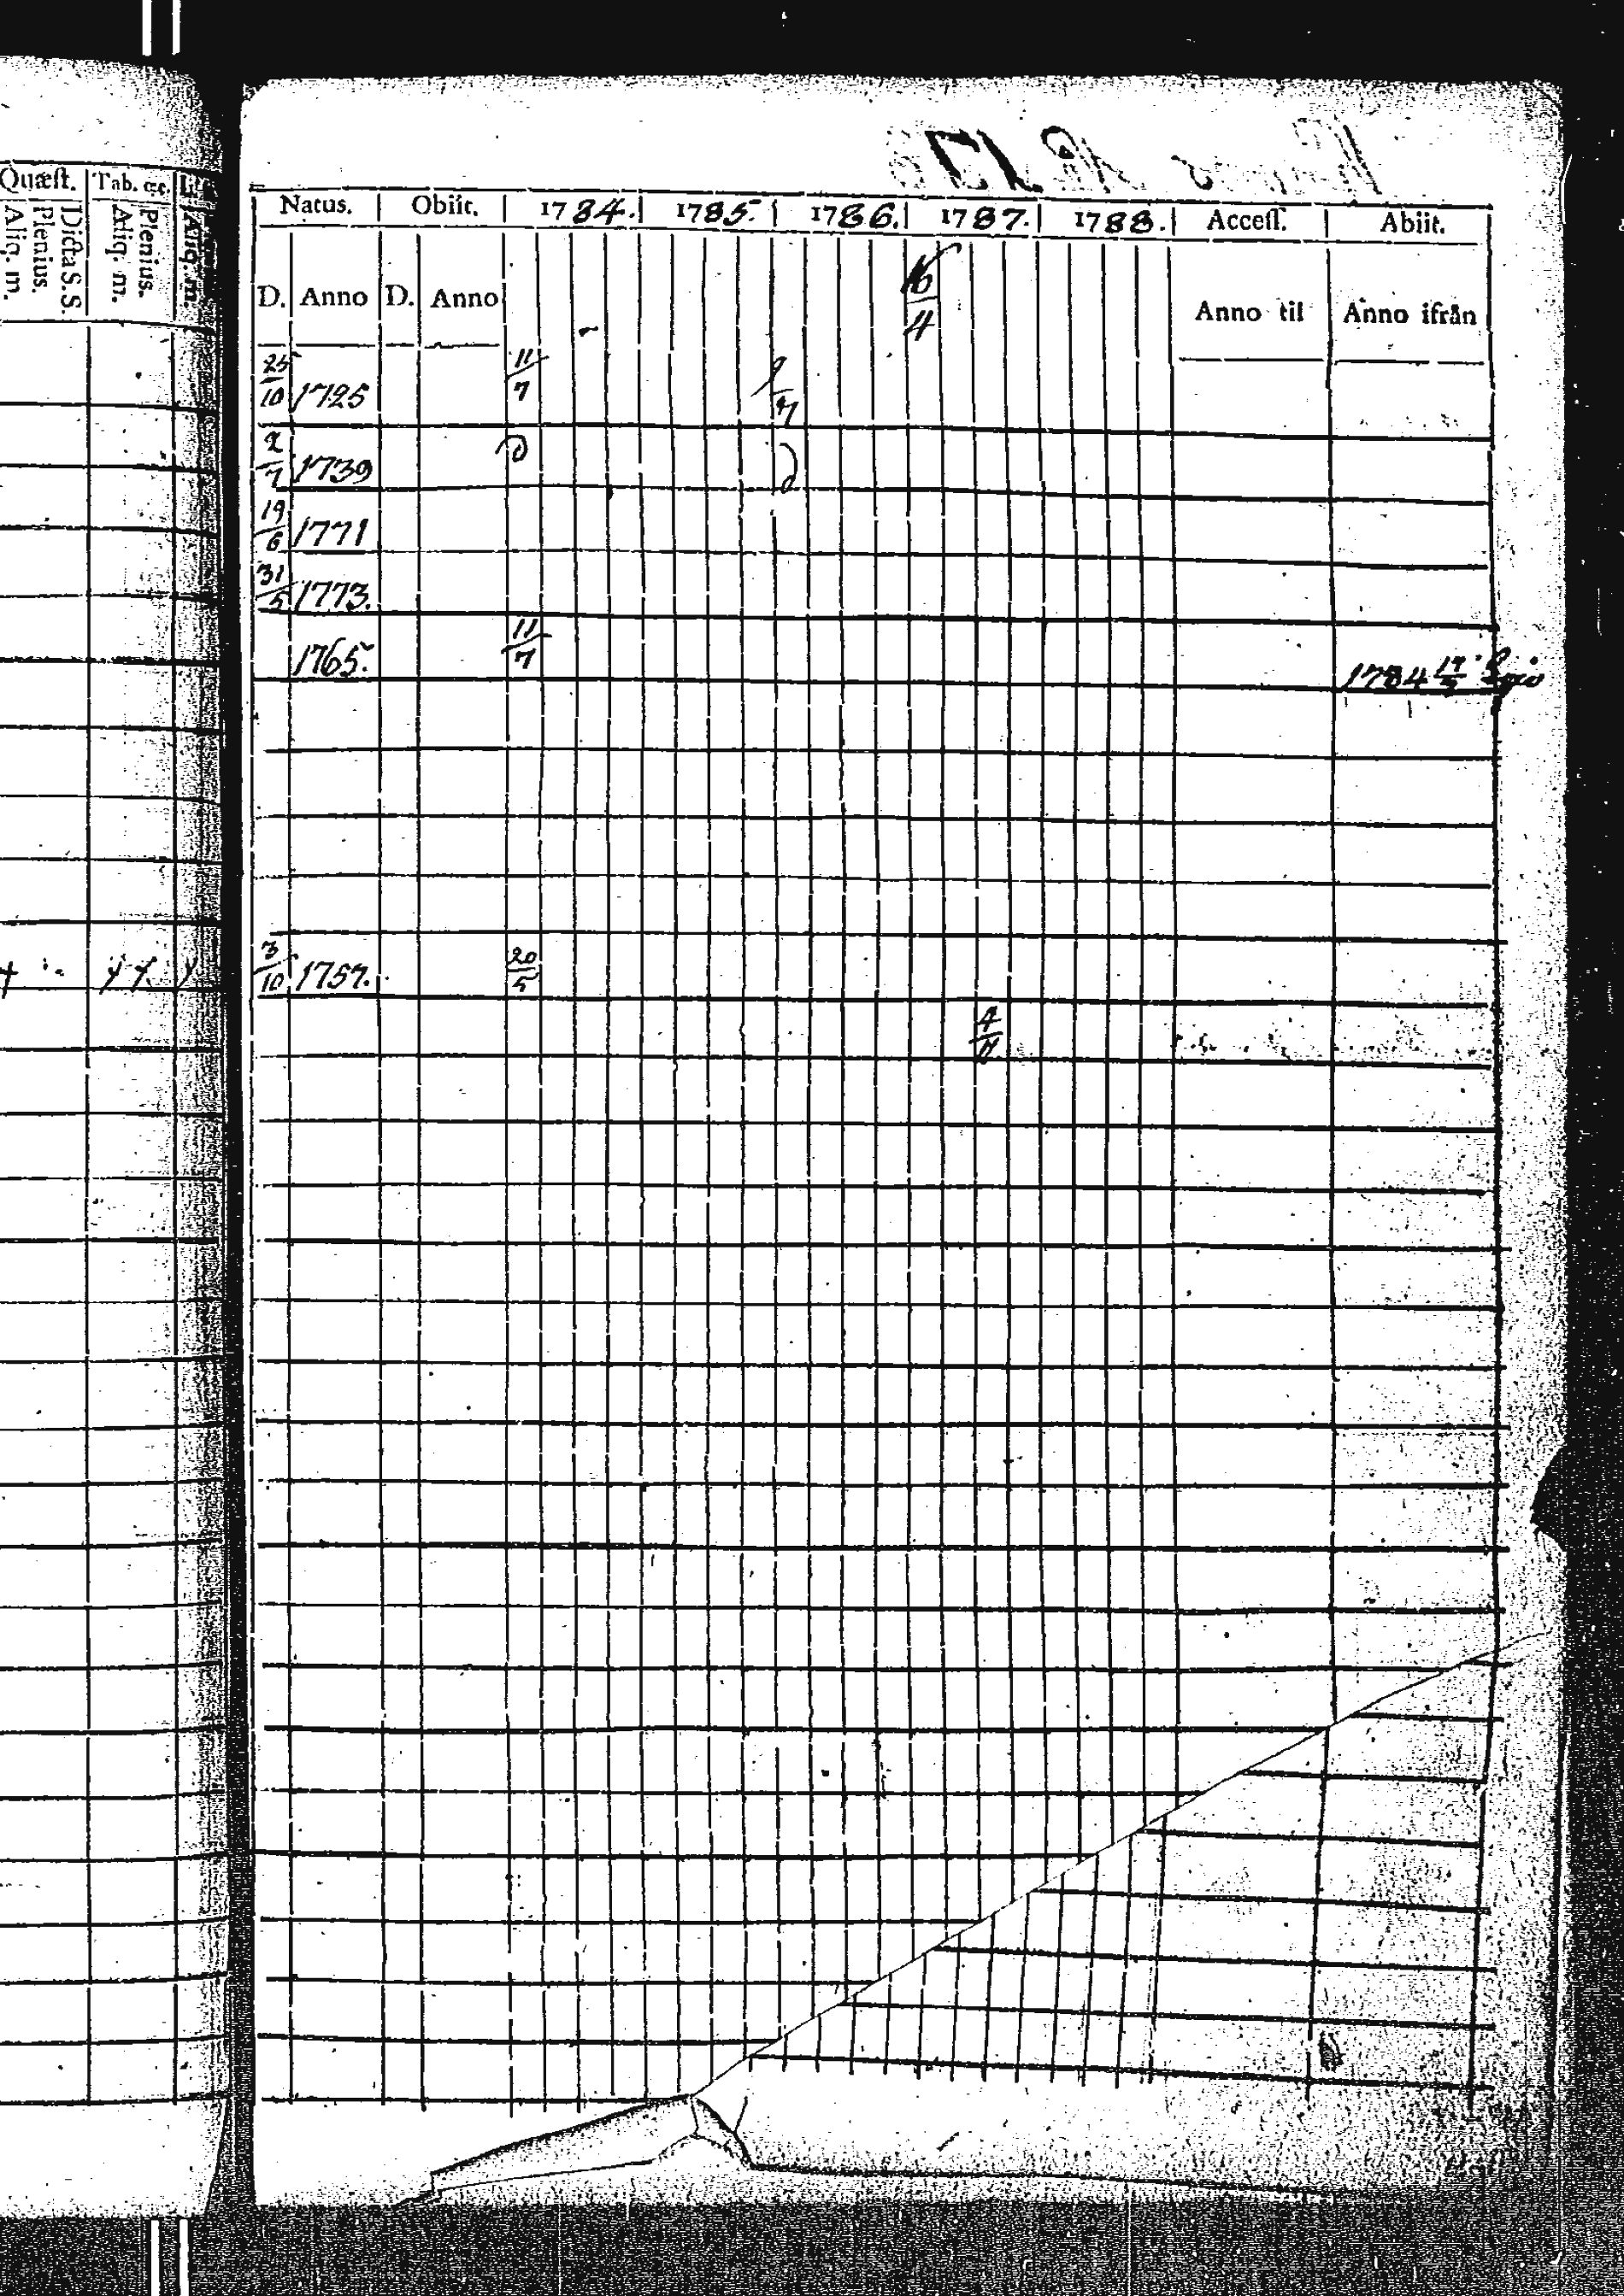 Quæst. Tab. &c.
Dicta S.S. Plenius. Aliq. m. Plenius. Aliq. m. Aliq. m.
Natus. Obiit. 1784. 1785. 1786. 1787. 1788. Access. Abiit.
D. Anno D. Anno 16/4 Anno til Anno ifrån
25/10 1725 11/7
2/7 1739
19/6 1771
31/5 1773.
1765. 11/7 1784
3/10 1757. 20/5